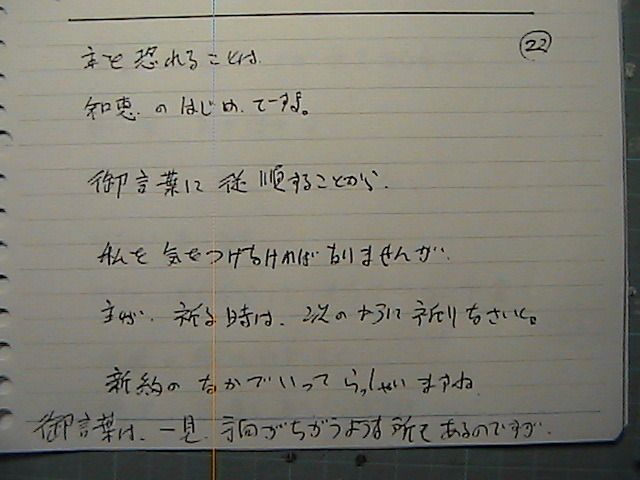 22
主を恐れることは
知恵のはじめ、てーすよ。
御言葉に従順することから、
私も気をつけなければなりませんが、
主が、祈る時は、次のように祈りなさいと。
新約のなかでいってらっしゃいますね
御言葉は、一見、方向がちがうような所もあるのですが、